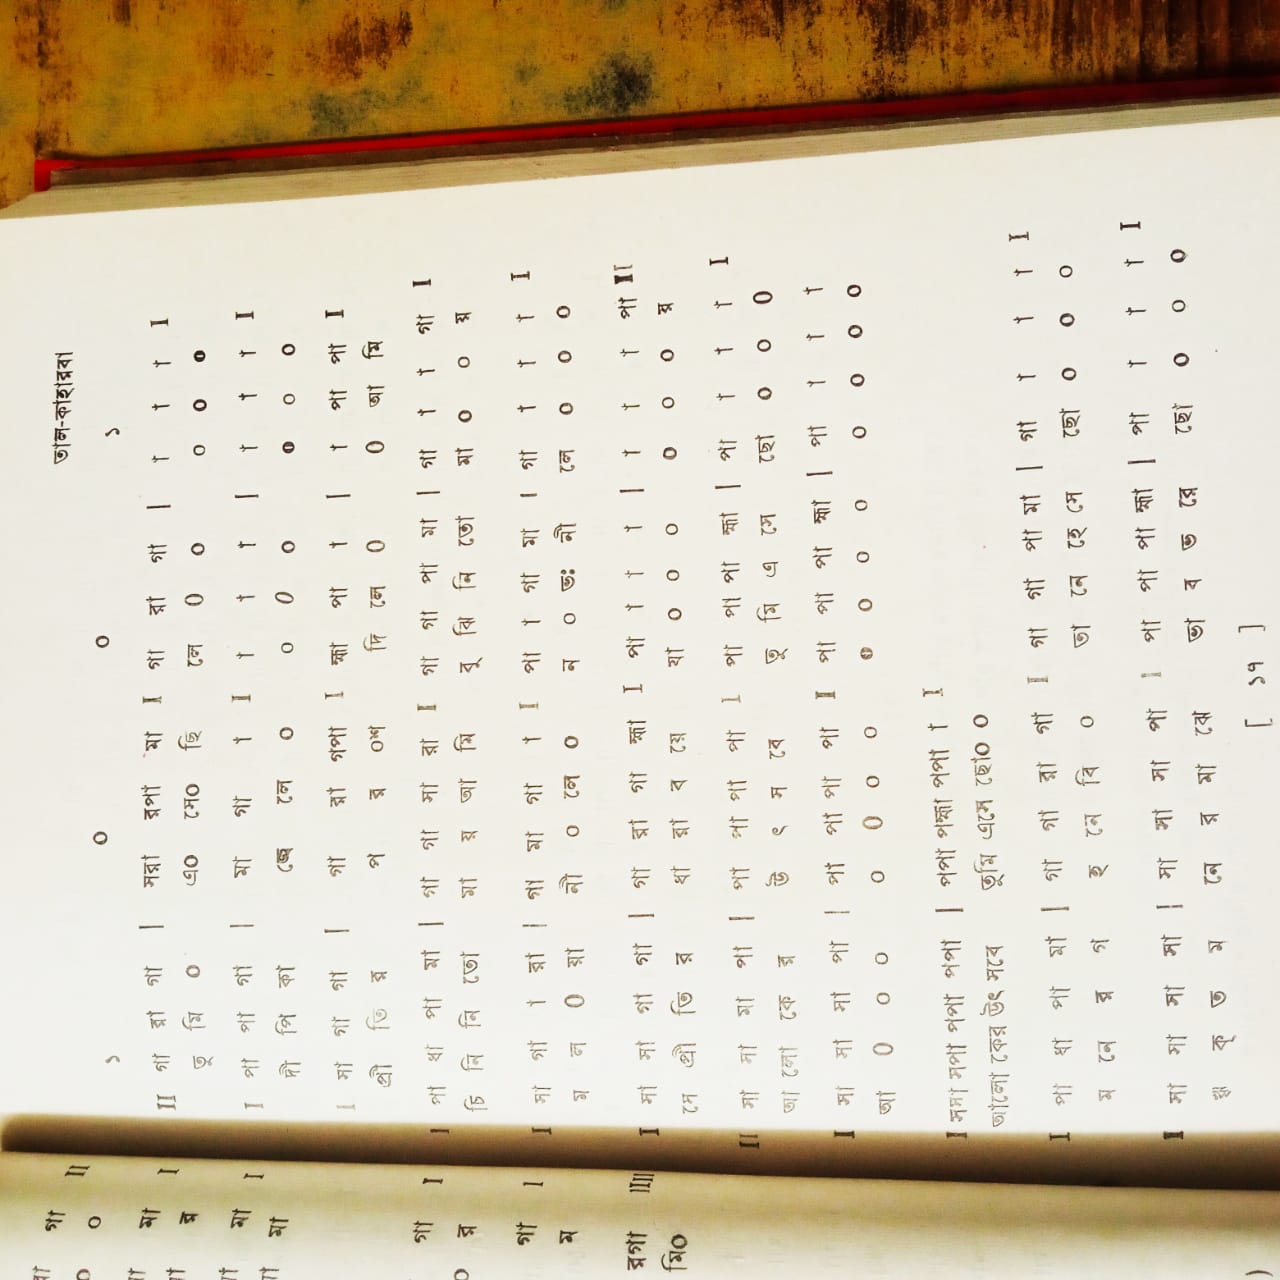 তাল-কাহারবা
১ ০ ০ ১
II গা রা গা | সরা রপা মা I গা রা গা | া া া I
তু মি ০ এ০ সে০ ছি লে 0 ০ ০ ০ ০
I পা পা গা | মা গা া I া া া | া া া I
দী পি কা জ্বে লে ০ ০ 0 ০ ০ ০ ০
I মা গা গা | গা রা গপা I হ্মা পা া | া পা পা I
প্রী তি র প র ০শ দি লে 0 0 আ মি
I পা ধা পা মা | গা গা মা রা I গা গা পা মা | গা া া গা I
চি নি নি তো মা য় আ মি বু ঝি নি তো মা ০ ০ য়
I মা গা া রা | গা মা গা া I পা া গা মা | গা া া া I
ম ল 0 য়া নী ০ লে ০ ন ০ ভঃ নী লে ০ ০ ০
I মা মা গা গা | গা রা গা হ্মা I পা া া া | া া া পা II
সে প্রী তি র ধা রা ব য়ে যা ০ ০ ০ ০ ০ ০ য়
II মা মা মা পা | পা পা পা পা I পা পা পা হ্মা | পা া া া I
আ লো কে র উ ৎ স বে তু মি এ সে ছো ০ ০ 0
I মা মা মা পা | পা পা পা পা I পা পা পা হ্মা | পা া া া
আ 0 ০ ০ ০ 0 ০ ০ ০ ০ ০ ০ ০ ০ ০ ০
I মমা মপা পপা পপা | পপা পহ্মা পপা া I
আলো কের উৎ সবে তুমি এসে ছো০ ০
I পা ধা পা মা | গা গা রা গা I গা গা পা মা | গা া া া I
ম নে র গ হ নে বি ০ তা নে হে সে ছো ০ ০ ০
I মা মা মা মা | মা মা মা পা I পা পা পা হ্মা | পা া া া I
কৃ ত ম নে র মা ঝে ভা ব ভ রে ছো ০ ০ ০
[ ১৭ ]
গা II
০
মা I
র
মা I
মা
গা I
র
গা I
ম
রগা IIII
মি০